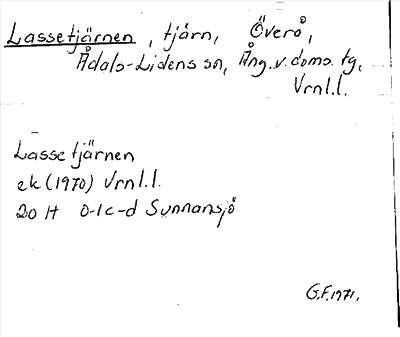 Lassetjärnen, tjärn, Överå,
Ådals-Lidens sn, Ång.v.doms. tg,
Vrnl.l.
Lassetjärnen
ek (1970) Vrnl.l.
20 H 0-1c-d Sunnansjö
G.F.1971.